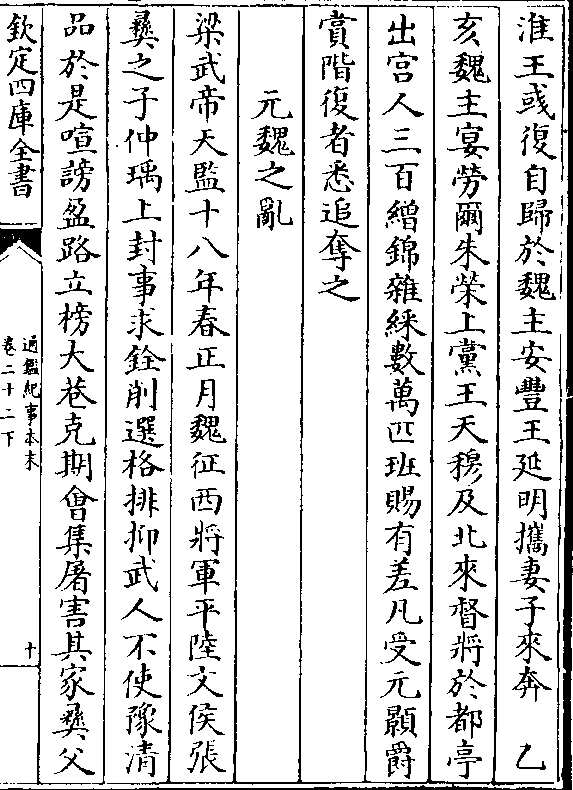 淮王彧復自歸於魏主安豐王延明攜妻子來奔　乙
亥魏主宴勞爾朱榮上黨王天穆及北來督將於都亭
出宮人三百繒錦雜綵數萬匹班賜有差凡受元顥爵
賞階復者悉追奪之
元魏之亂
梁武帝天監十八年春正月魏征西將軍平陸文侯張
彛之子仲瑀上封事求銓削選格排抑武人不使豫清
品於是喧謗盈路立榜大巷克期會集屠害其家彛父
欽定四庫全書
通鑑紀事本末
卷二十二下
十